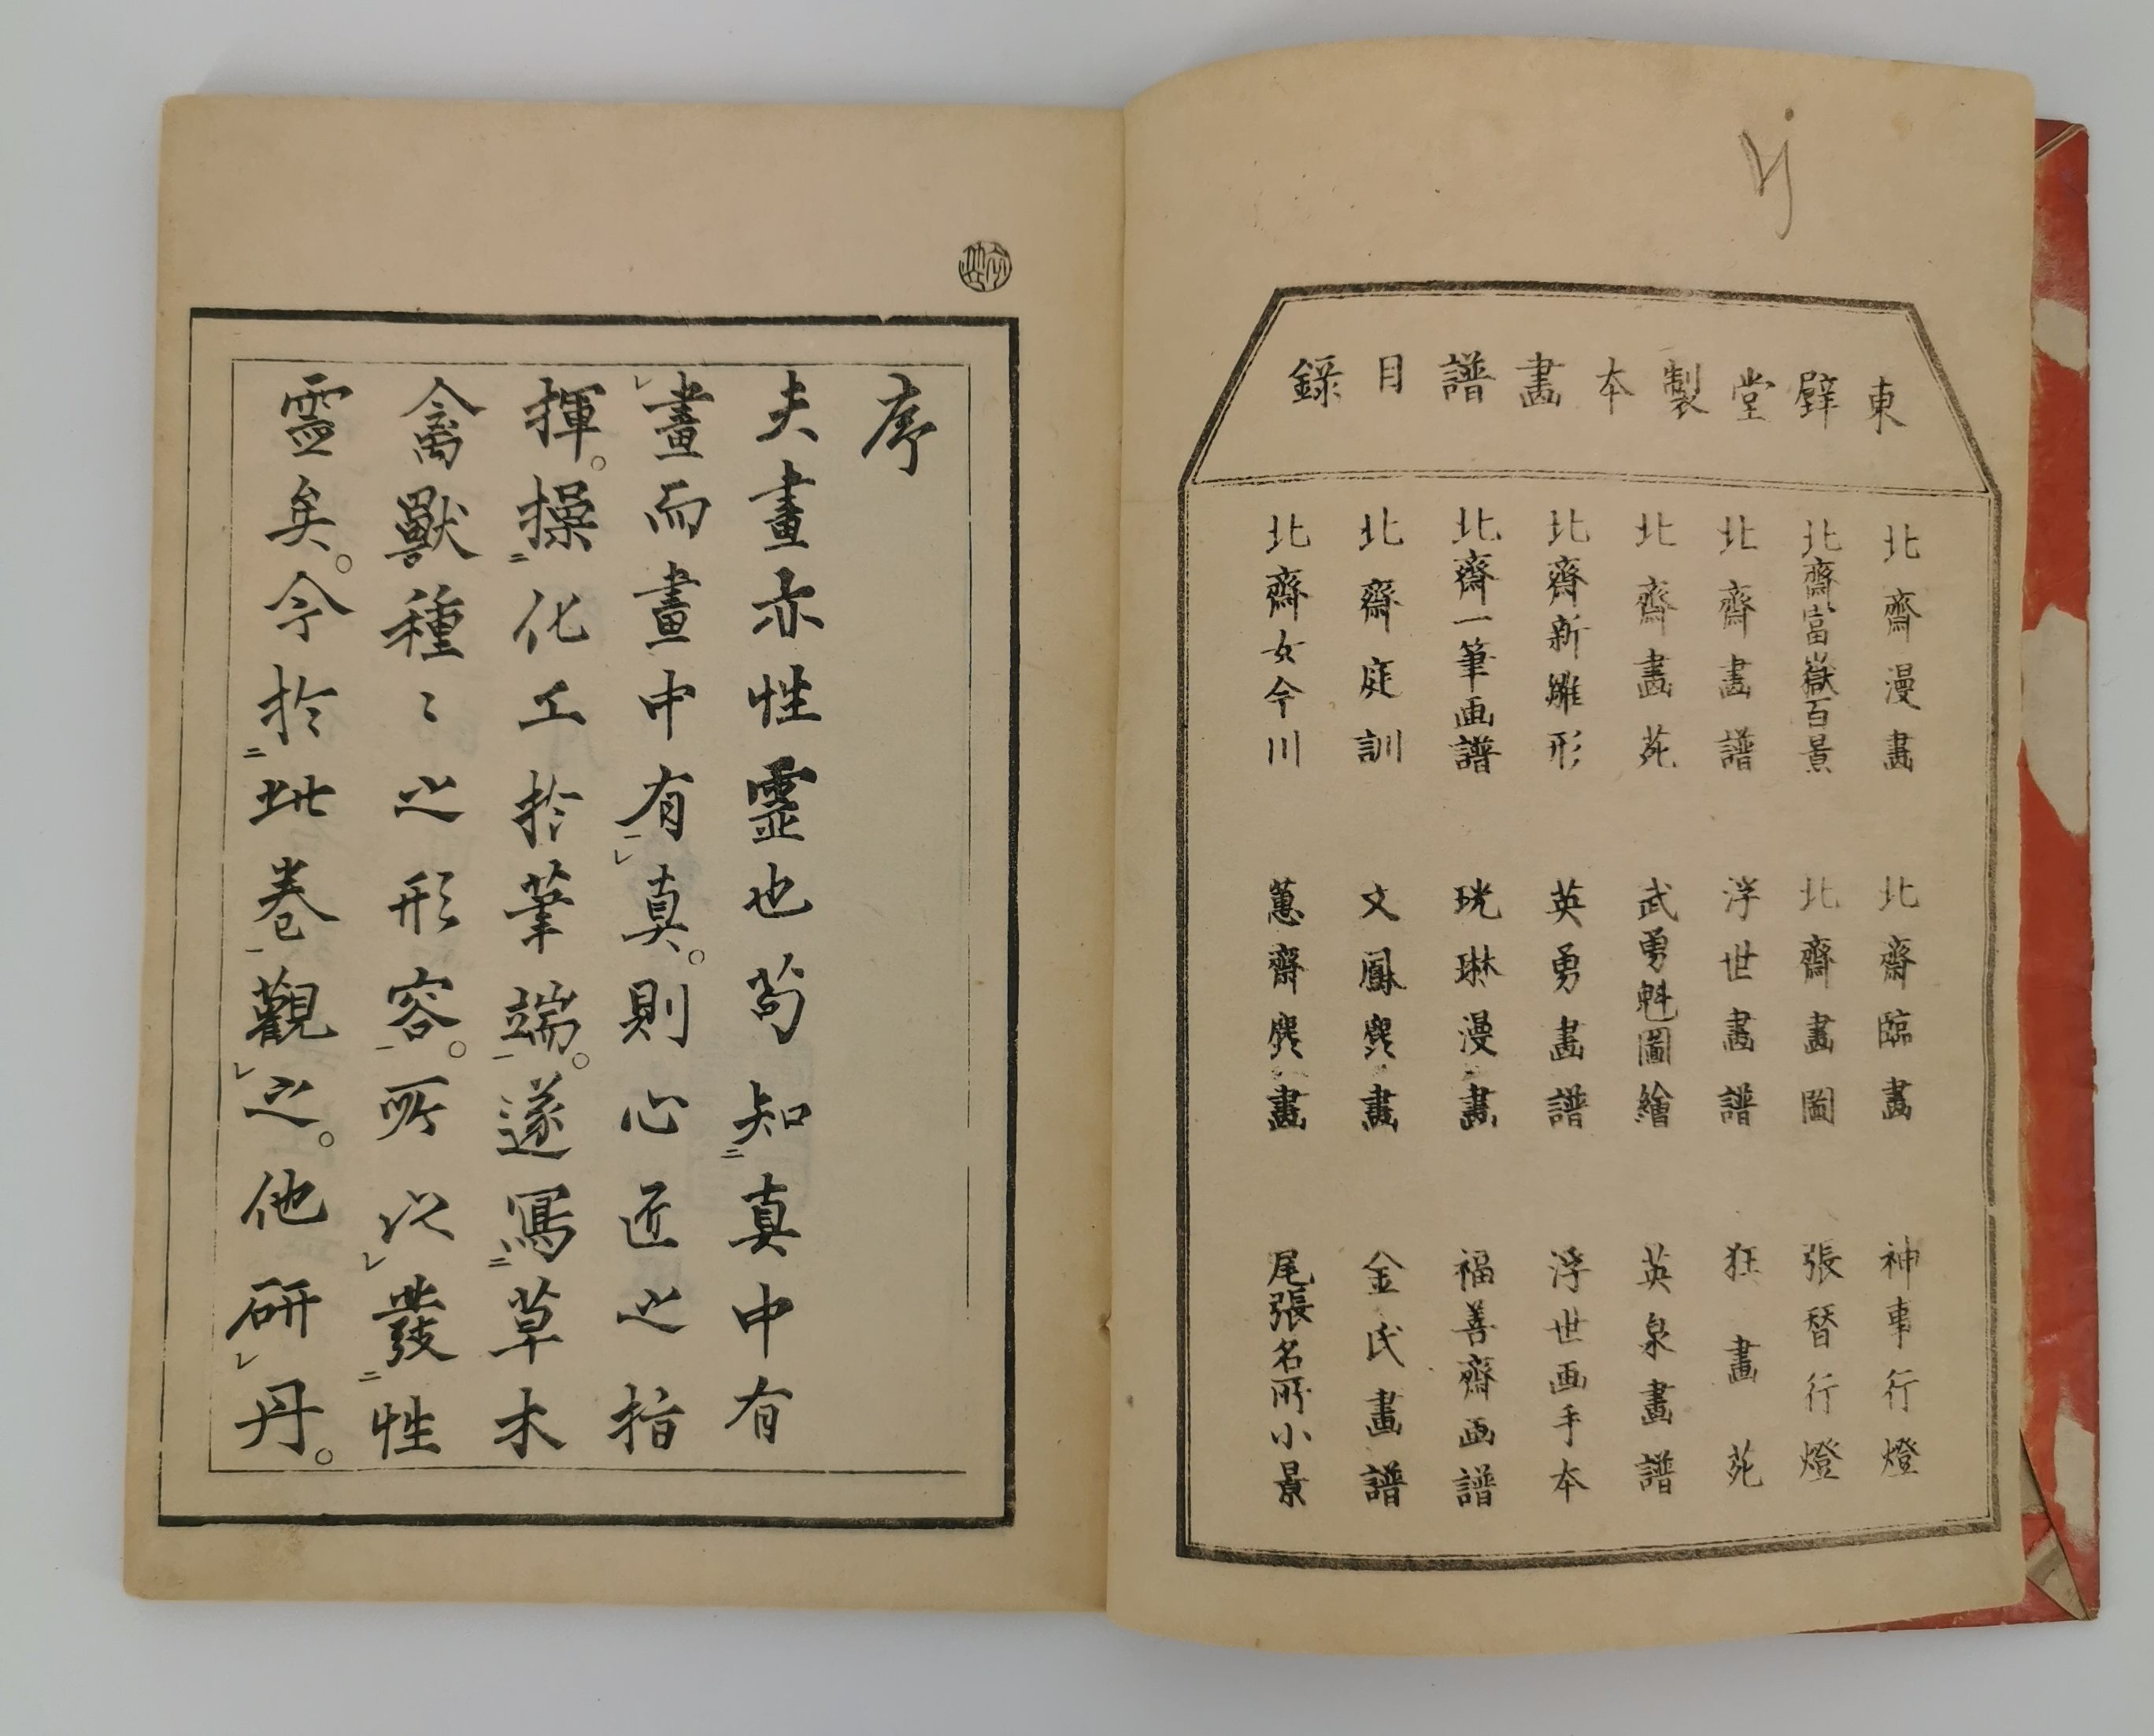 東壁堂製本畫譜目錄
北齋漫畫
北齋富嶽百景
北齋畫譜
北齋畫苑
北齋新雛形
北齋一筆画譜
北齋庭訓
北齋女今川
北齋臨畫
北齋畫圖
浮世畫譜
武勇魁圖繪
英勇畫譜
琳漫畫
文鳳麁畫
蕙齋麁畫
神事行燈
張替行燈
狂畫苑
英泉畫譜
浮世画手本
福善齋画譜
金氏畫譜
尾張名所小景
序
夫畫亦性霊也苟知㆓真中有
㆑畫而畫中有㆒㆑真。則心匠之指
揮。操㆓化工於筆端㆒。遂寫㆓草木
禽獸種〻之形容㆒。所以㆑發㆓性
霊矣。今於㆓此卷㆒觀㆑之。他研㆑丹。